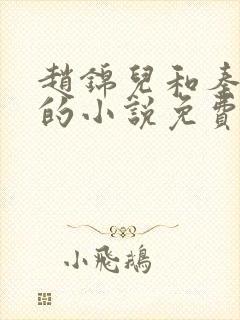 趙錦兒和秦
的小說免費
小飛鵝